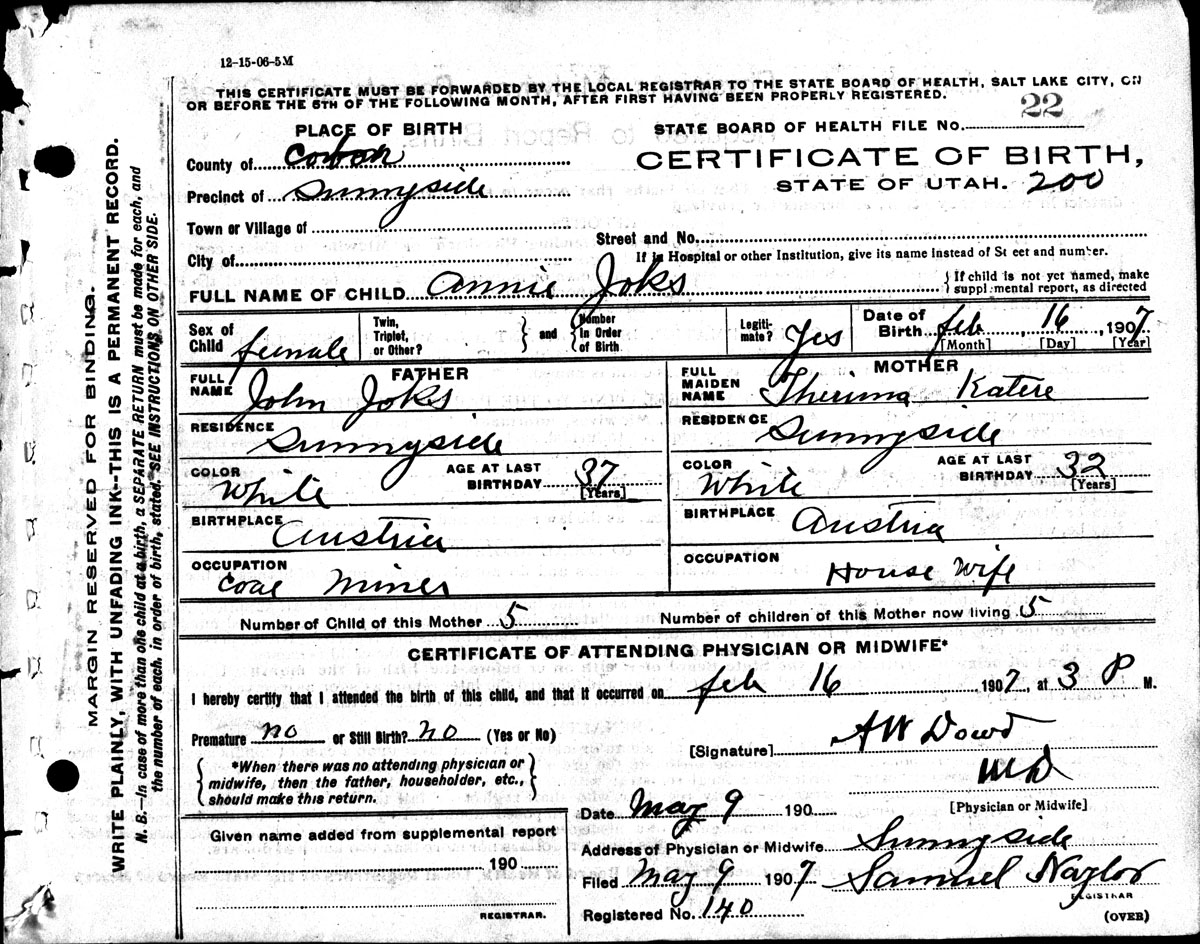 12-15-06-5M
THIS CERTIFICATE MUST BE FORWARDED BY THE LOCAL REGISTRAR TO THE STATE BOARD OF HEALTH, SALT LAKE CITY, ON
OR BEFORE THE 5TH OF THE FOLLOWING MONTH, AFTER FIRST HAVING BEEN PROPERLY REGISTERED.
PLACE OF BIRTH
STATE BOARD OF HEALTH FILE NO. 22
County of Carbon
CERTIFICATE OF BIRTH,
Precinct of Sunnyside
STATE OF UTAH. 200
Town or Village of
Street and No.
City of
If in Hospital or other Institution, give its name instead of St eet and number.
FULL NAME OF CHILD Annie Joks
{ If child is not yet named, make
supplemental report, as directed
Sex of Child female
Twin, Triplet, or Other? } and { Number in Order of Birth
Legiti-mate? Yes
Date of Birth feb 16, 1907
[Month] [Day] [Year]
FATHER
FULL NAME John Joks
RESIDENCE Sunnyside
COLOR White
AGE AT LAST BIRTHDAY 37
[Years]
BIRTHPLACE Austria
OCCUPATION Coal Miner
MOTHER
FULL MAIDEN NAME Therima Katere
RESIDENCE Sunnyside
COLOR White
AGE AT LAST BIRTHDAY 32
[Years]
BIRTHPLACE Austria
OCCUPATION House Wife
Number of Child of this Mother 5
Number of children of this Mother now living 5
CERTIFICATE OF ATTENDING PHYSICIAN OR MIDWIFE*
I hereby certify that I attended the birth of this child, and that it occurred on feb 16 1907, at 3 P M.
Premature no or Still Birth? no (Yes or No)
[Signature] AW Dowd
MD
{ *When there was no attending physician or
midwife, then the father, householder, etc.,
should make this return. }
[Physician or Midwife]
Date May 9 190
Given name added from supplemental report
190
REGISTRAR.
Address of Physician or Midwife Sunnyside
Filed May 9 1907 Samuel Naylor
REGISTRAR
Registered No. 140
(OVER)
MARGIN RESERVED FOR BINDING.
WRITE PLAINLY, WITH UNFADING INK--THIS IS A PERMANENT RECORD.
N. B.—In case of more than one child at a birth, a SEPARATE RETURN must be made for each, and
the number of each, in order of birth, stated. SEE INSTRUCTIONS ON OTHER SIDE.